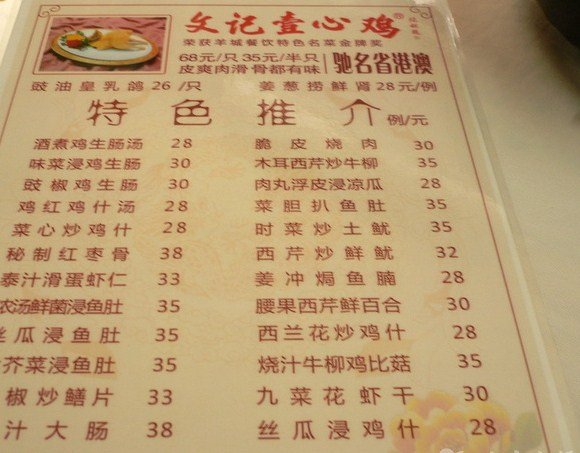 文记壹心鸡
荣获羊城餐饮特色名菜金牌奖
68元/只 35元/半只
皮爽肉滑骨都有味
驰名省港澳
豉油皇乳鸽 26 /只 姜葱捞鲜肾 28元/例
特色推介 例/元
酒煮鸡生肠汤 28 脆皮烧肉 30
味菜浸鸡生肠 30 木耳西芹炒牛柳 35
豉椒鸡生肠 30 肉丸浮皮浸凉瓜 28
鸡红鸡什汤 28 菜胆扒鱼肚 35
菜心炒鸡什 28 时菜炒土鱿 35
秘制红枣骨 38 西芹炒鲜鱿 32
泰汁滑蛋虾仁 33 姜冲焗鱼腩 28
农汤鲜菌浸鱼肚 35 腰果西芹鲜百合 30
丝瓜浸鱼肚 35 西兰花炒鸡什 28
芥菜浸鱼肚 35 烧汁牛柳鸡比菇 35
椒炒鳝片 33 九菜花虾干 30
汁大肠 38 丝瓜浸鸡什 28